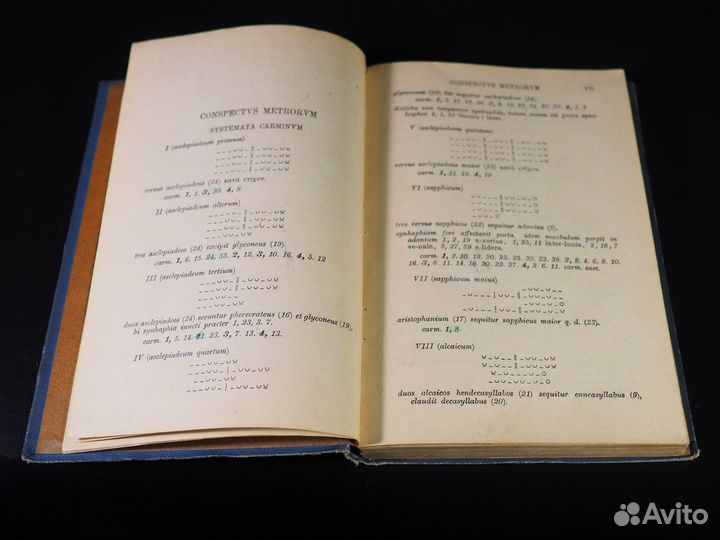 CONSPECTVS METRORVM
SYSTEMATA CARMINVM
I (asclepiadeum primum)
versus asclepiadeus (24) κατὰ στίχον.
carm. 1, 1. 3, 30. 4, 8
II (asclepiadeum alterum)
tres asclepiadeos (24) excipit glyconeus (19).
carm. 1, 6. 15. 24. 33. 2, 12. 3, 10. 16. 4, 5. 12
III (asclepiadeum tertium)
duos asclepiadeos (24) secuntur pherecrateus (16) et glyconeus (19),
hi synhaphia iuncti praeter 1, 23, 3. 7.
carm. 1, 5. 14. 21. 23. 3, 7. 13. 4, 13.
IV (asclepiadeum quartum)
CONSPECTVS METRORVM VII
glyconeum (19) sequitur asclepiadeus (24).
carm. 1, 3. 13. 19. 36. 3, 9. 15. 19. 24. 25. 28. 4, 1. 3
disticha non iunguntur synhaphia, tamen
V (asclepiadeum quintum)
versus asclepiadeus maior (23) κατὰ στίχον
carm. 1, 11. 18. 4, 10
VI (sapphicum)
tres versus sapphicos (22) sequitur adonius (5).
synhaphiam fere affectavit poeta. idem vocabulum pergit in
adonium 1, 2, 19 u-xorius, 1, 25, 11 inter-lunia, 2, 16, 7
ve-nale, 3, 27, 59 e-lidere.
carm. 1, 2. 10. 12. 20. 22. 25. 30. 32. 38. 2, 2. 4. 6. 8. 10.
16. 3, 8. 11. 14. 18. 20. 22. 27. 4, 2. 6. 11. carm. saec.
VII (sapphicum maius)
aristophanium (17) sequitur sapphicus maior q. d. (23).
carm. 1, 8
VIII (alcaicum)
duos alcaicos hendecasyllabus (21) sequitur enneasyllabus (9),
claudit decasyllabus (20).
Avito